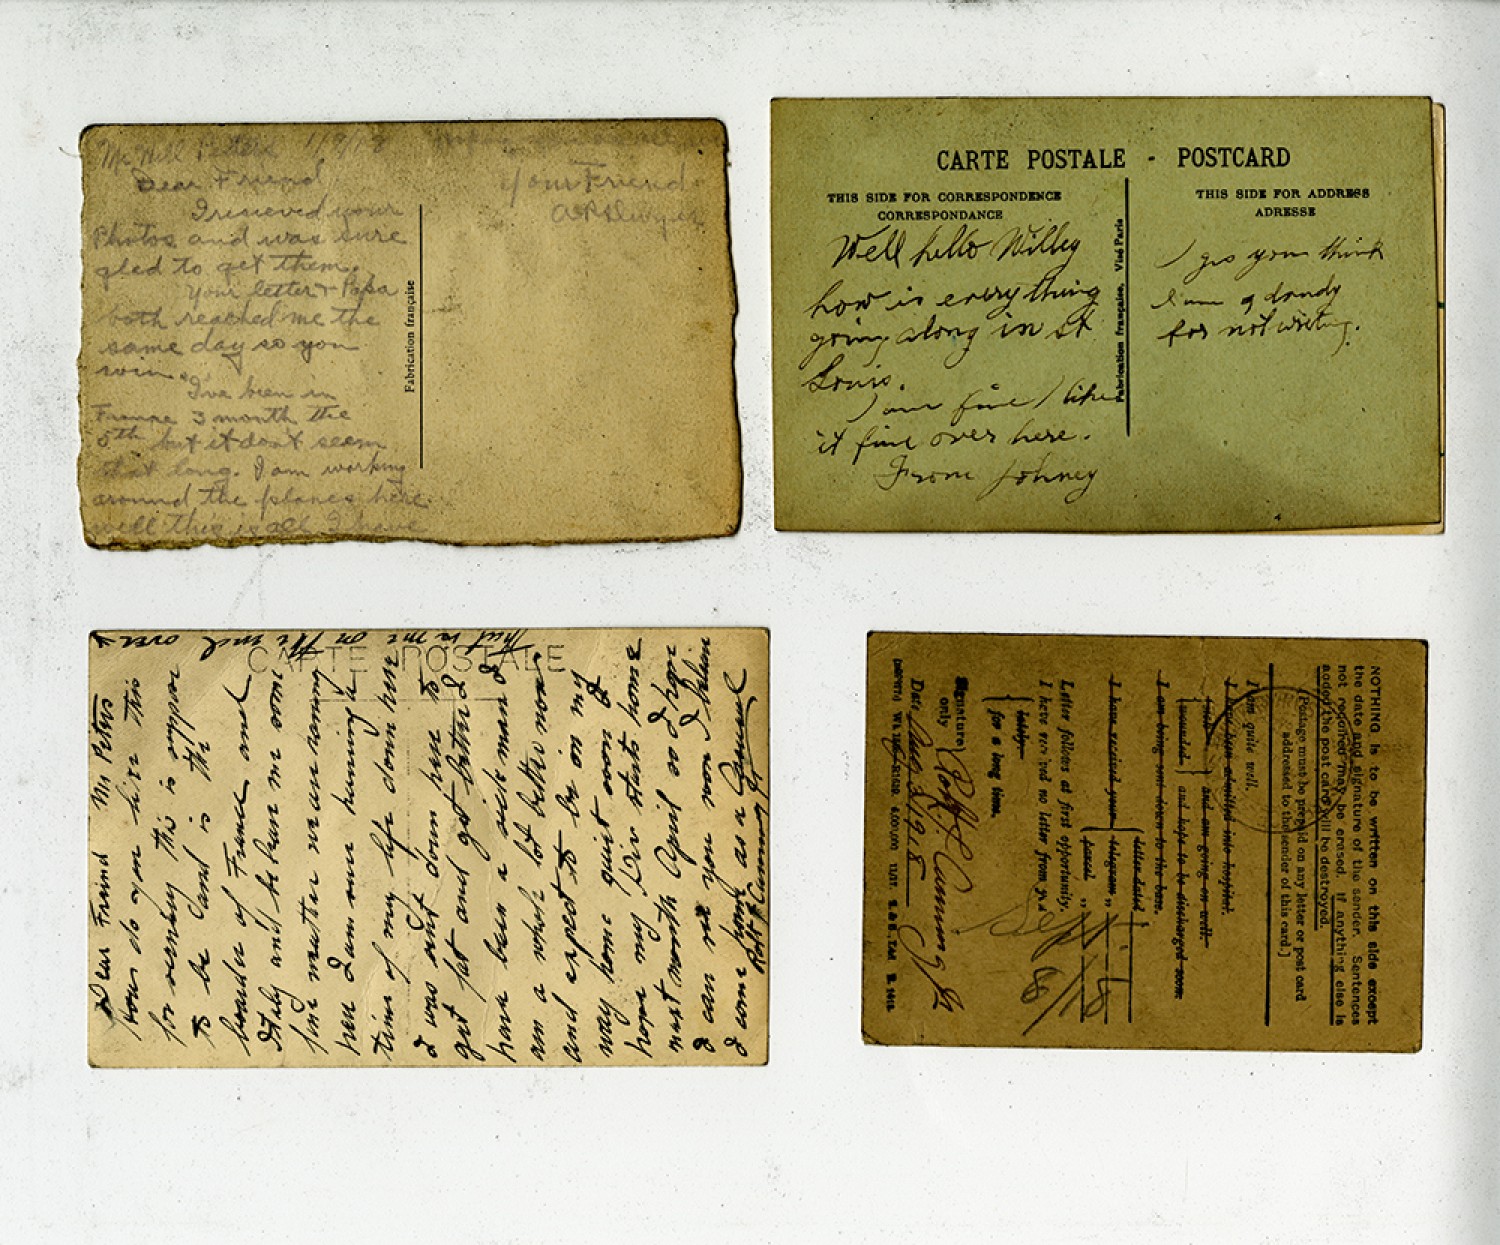 Mr Will Peters 1/9/18
Dear Friend
I recieved your
Photos and was sure
gled to get them.
Your letter + Papa
both reached me the
same day so you
win.
I've been in
France 3 month the
5th but it don't seem
that long. I am working
around the planes here
well this is all I have
Your Friend
Fabrication française
CARTE POSTALE - POSTCARD
THIS SIDE FOR CORRESPONDENCE
CORRESPONDANCE
Well hello Willey
how is everything
going along in St
Louis.
I am fine I like
it fine over here.
From Johney
Fabrication française, Visé Paris
THIS SIDE FOR ADDRESS
ADRESSE
I ges you think
I am a dandy
for not writing.
4
CARTE POSTALE
Dear Freind Mr Peters
How do you like this
for scenery this is suppose
to be Cand is the
border of France and
Italy and beleave me some
fine weather we are having
here I am sure having the
time of my life down here
I was sent down here to
get fat and get better I
have been a sick man I
am a whole lot better now
and expect to be on my
way home quit soon I
hope my Div starts home
next month April so I hope
I can see you soon I belive
I come home as a Casual
Robt J Cunning Jr
that is me on the end over
NOTHING is to be written on this side except
the date and signature of the sender. Sentences
not required may be erased. If anything else is
added the post card will be destroyed.
[Postage must be prepaid on any letter or post card
addressed to the sender of this card.]
I am quite well.
I have been admitted into hospital
sick and am going on well.
wounded and hope to be discharged soon
I am being sent down to the base.
I have received your letter dated
telegram "
parcel "
Letter follows at first opportunity.
I have received no letter from you
lately
for a long time.
Signature only Robt J. Cunning Jr
Date Aug 31 1918